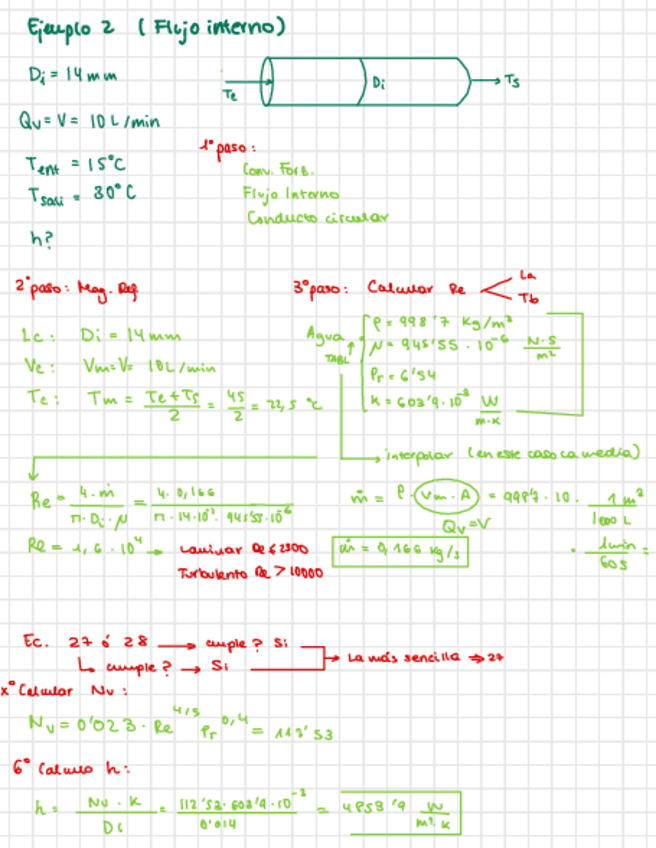 Ejemplo 2 ( Flujo interno)
Di = 14 mm
Te
Di
Ts
Qv = V = 10 L/min
Tent = 15°C
Tsali = 30°C
h?
1° paso:
Conv. Forz.
Flujo Interno
Conducto circular
2° paso: Mag. Ref
Lc: Di = 14 mm
Vc: Vm = V = 10 L/min
Tc: Tm = (Te + Ts)/2 = 45/2 = 22,5 °C
3° paso: Calcular Re
La
Tb
Agua
TABL
ρ = 998'7 Kg/m³
μ = 945'55 · 10⁻⁶ N·S/m²
Pr = 6'54
K = 603'9 · 10⁻³ W/m·K
interpolar (en este caso la media)
Re = 4·ṁ/π·Di·μ = 4·0,166/π·14·10⁻³·945'55·10⁻⁶
Re = 1,6 · 10⁴
Laminar Re ≤ 2300
Turbulento Re > 10000
ṁ = ρ · Vm·A = 998'7 · 10 · 1 m³/1000 L
Qv = V
· 1min/60s =
ṁ = 0,166 kg/s
Ec. 27 ó 28 → cumple? Si
↳ cumple? → Si
→ La más sencilla ⇒ 27
x° Calcular Nu:
Nu = 0'023 · Re^4/5 Pr^0,4 = 112'53
6° Calculo h:
h = Nu · K/Di = 112'53 · 603'9 · 10⁻³/0'014 = 4858'9 W/m²·K